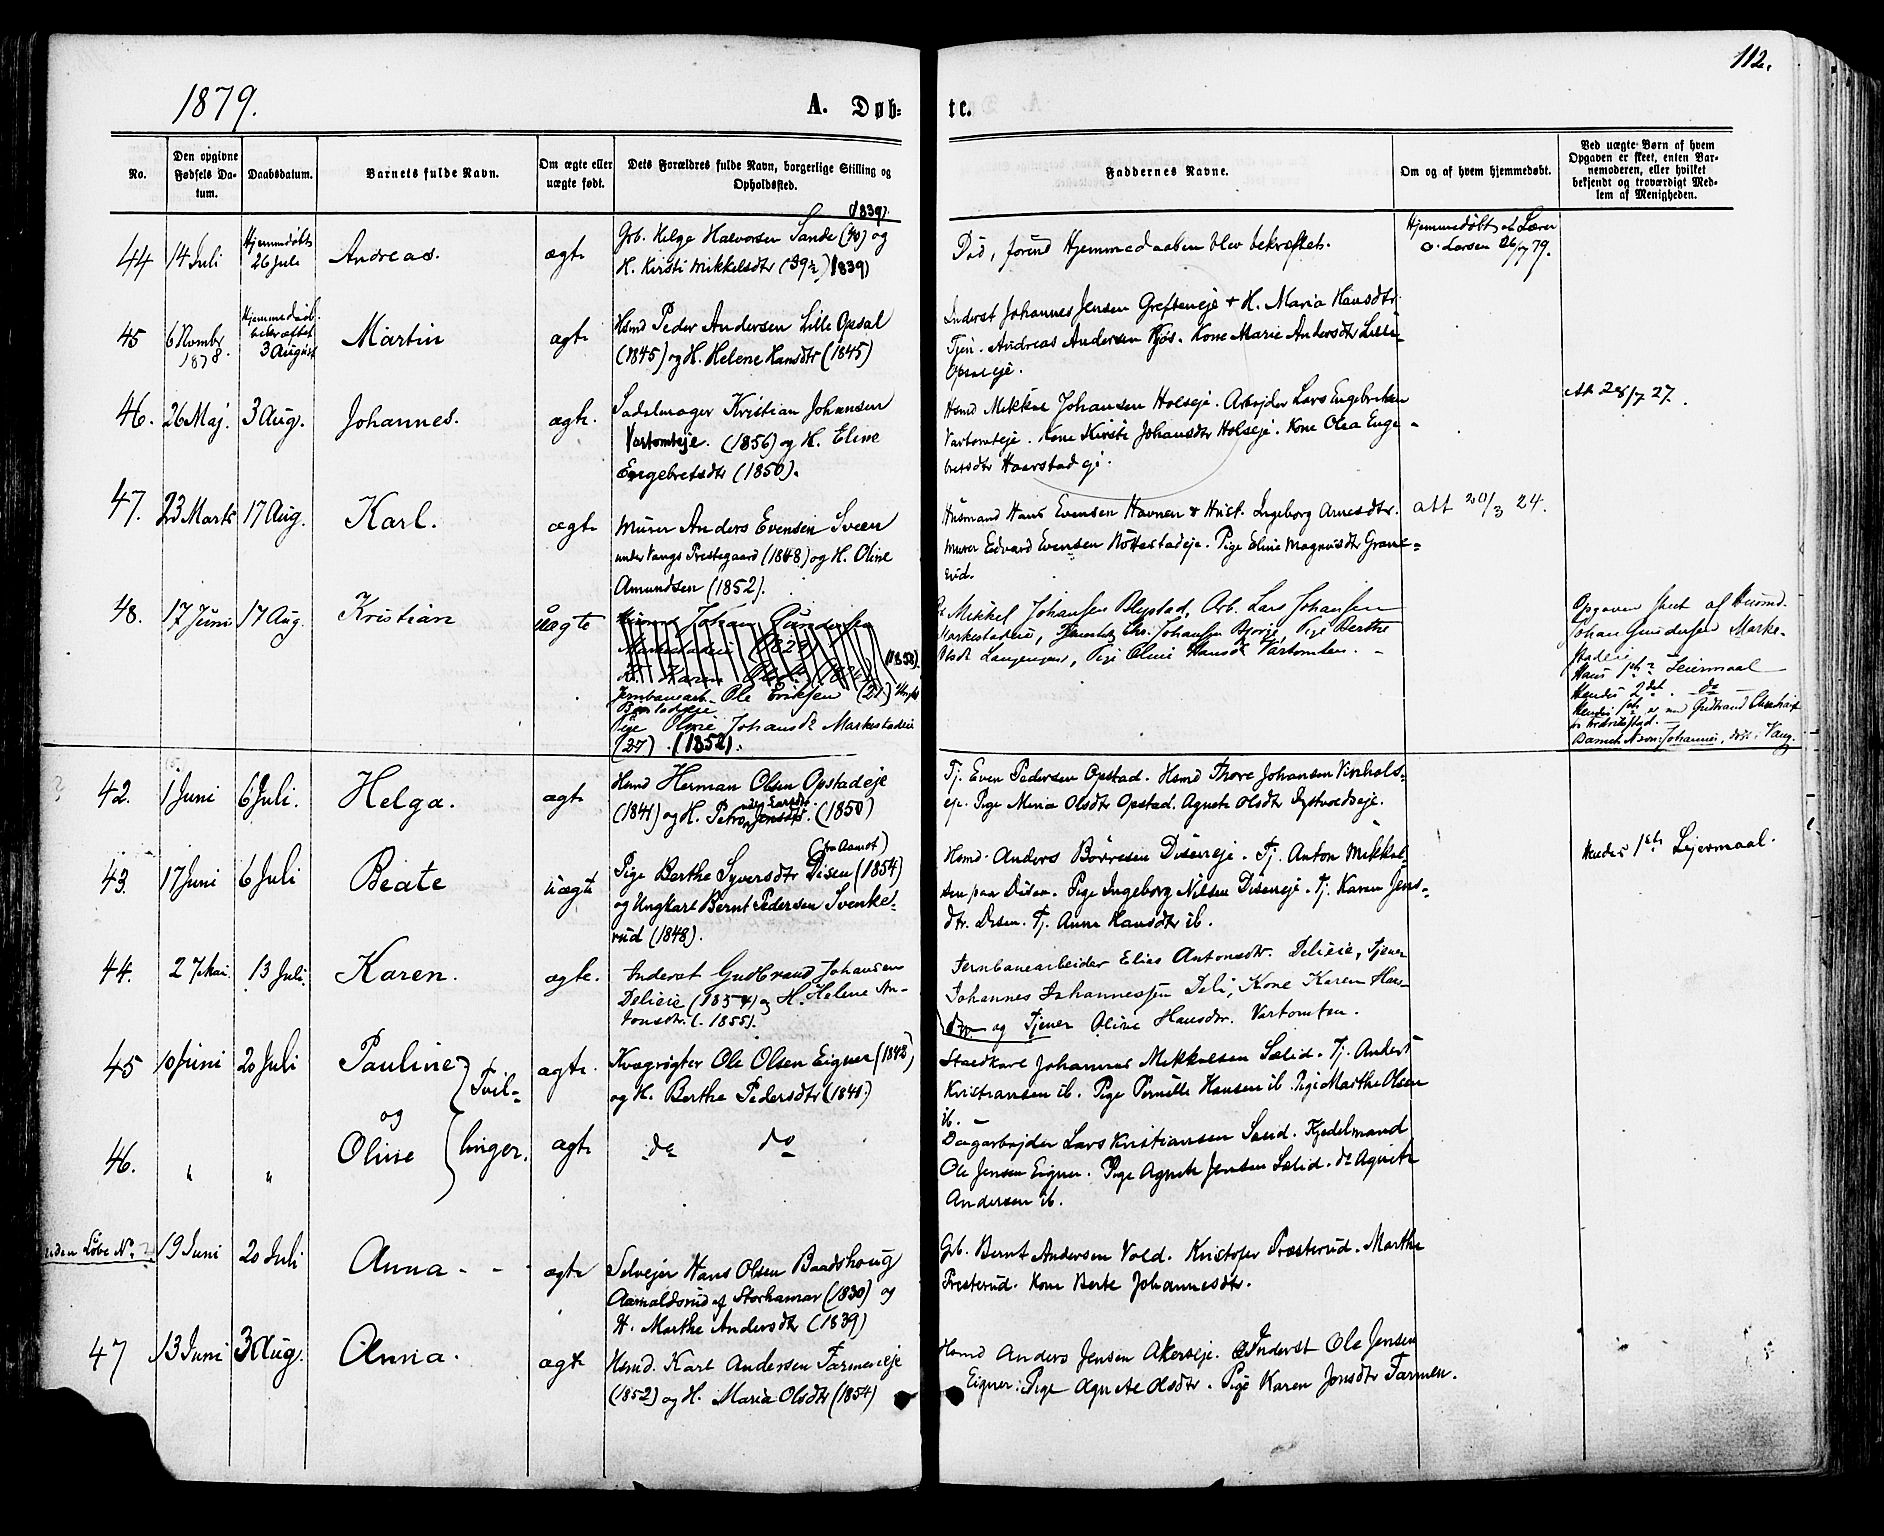 112.
1879.
A. Døb-
te.
No.
Den opgivne Fødsels Da-tum.
Daabsdatum.
Barnets fulde Navn.
Om ægte eller uægte født.
Dets Forældres fulde Navn, borgerlige Stilling og Opholdssted.
Faddernes Navne.
Om og af hvem hjemmedøbt.
Ved uægte Børn af hvem Opgaven er skeet, enten Bar-nemoderen, eller hvilket bekjendt og troværdigt Med-lem af Menigheden.
44 14 Juli Hjemmedøbt 26 Juli Andreas. ægte
(1839).
Grb. Helge Halvorsen Sande (40) og
H. Kirsti Mikkelsdtr (39½) (1839)
Død, førend Hjemmedaaben blev bekræftet.
Hjemmedøbt af Lærer
O. Larsen 26/7 79.
45 6 Novmbr 1878. Hjemmedaab bekræftet 3 August Martin ægte
Hsmd Peder Andersen Lille Opsal
(1845) og H. Helene Hansdtr (1845)
Inderst Johannes Jensen Grefteneje + H. Maria Hansdtr.
Tjen. Andreas Andersen Kjøs. Kone Marie Andersdtr Lille
Opsaleje.
46. 26 Maj. 3 Aug. Johannes. ægte.
Sadelmager Kristian Johansen
Vartomteje. (1856) og H. Eline
Engebretsdtr (1850).
Hsmd Mikkel Johansen Holseje. Arbejder Lars Engebretsen
Vartomteje. Kone Kirsti Johansdtr Holseje. Kone Olea Enge-
bretsdtr Haarstadeje.
Att 28/7 27.
47. 23 Marts 17 Aug. Karl. ægte
Murer Anders Evensen Sveen
under Vangs Prestegaard (1848) og H. Oline
Amundsen (1852).
Husmand Hans Evensen Havnen & Hust. Ingeborg Arnesdtr.
Murer Edvard Evensen Nottestadeje. Pige Eline Magnusdtr Grane-
rud.
att 20/3 24.
48. 17 Juni 17 Aug. Kristian Uægte
Johan Gundersen
Jernbanearb. Ole Eriksen (21) Ungk
Pige Oline Johansdtr Markestadeie
(27). (1852).
Mikkel Johansen Blystad, Arb. Lars Johansen
Markestadeie, Chr. Johansen Bjørge, Pige Berthe
Langengen, Pige Oline Hansdtr Vartomten.
Opgaven skeet af Husmd.
Johan Gundersen Marke-
stadeie
Hans 1ste Leiermaal
Hendes 2det do
Fredrikstad.
42. 1 Juni 6 Juli. Helga. ægte
Hsmd Herman Olsen Opstadeje
(1841) og H. Petro Jensdtr. (1850)
Tj. Even Pedersen Opstad. Hsmd Thore Johansen Vinhols-
eje. Pige Mina Olsdtr Opstad. Agnete Olsdtr Dystvoldseje.
43. 17 Juni 6 Juli Beate uægte
(fra Aamot)
Pige Berthe Syversdtr Disen (1854)
og Ungkarl Bernt Pedersen Svenke-
rud (1848).
Hsmd. Anders Børresen Diseneje. Tj. Anton Mikkel-
sen paa Disen. Pige Ingeborg Nilsen Diseneje. Tj. Karen Jens-
dtr. Disen. Tj. Anne Hansdtr ib.
Hendes 1ste Lejermaal.
44. 27 Mai. 13 Juli. Karen. ægte.
Inderst Gudbrand Johansen
Delieie (1854) og H. Helene An-
tonsdtr. (1855).
Jernbanearbeider Elias Antonsdtr. Delieie, Tjener
Johannes Johannessen Deli, Kone Karen Hans-
dtr. og Tjener Oline Hansdtr. Vartomten.
45 10 Juni 20 Juli Pauline } Tvil- ægte.
Kvægrøgter Ole Olsen Eigner (1842)
og H. Berthe Pedersdtr (1841)
Staldkarl Johannes Mikkelsen Sælid. Tj. Anders
Kristiansen ib. Pige Pernille Hansen ib. Pige Marthe Olsen
ib.
og
46. " " Oline } linger. ægte do do
Dagarbejder Lars Kristiansen Sand. Kjedelmand
Ole Jensen Eigner. Pige Agnete Jensen Sælid. do Agnete
Andersen ib.
uden Løbe No. 19 Juni 20 Juli Anna - - ægte
Selvejer Hans Olsen Baadshoug
Aarnaldsrud af Storhamar (1830) og
H. Marthe Andersdtr (1839)
Grb. Bernt Andersen Vold. Kristofer Præsterud. Marthe
Presterud. Kone Berte Johannesdtr.
47 13 Juni 3 Aug. Anna. ægte
Hsmd. Karl Andersen Farmeneje
(1852) og H. Maria Olsdtr (1854)
Hsmd Anders Jensen Akerseje. Inderst Ole Jensen
Eigner. Pige Agnete Olsdtr. Pige Karen Jonsdtr Farmen.